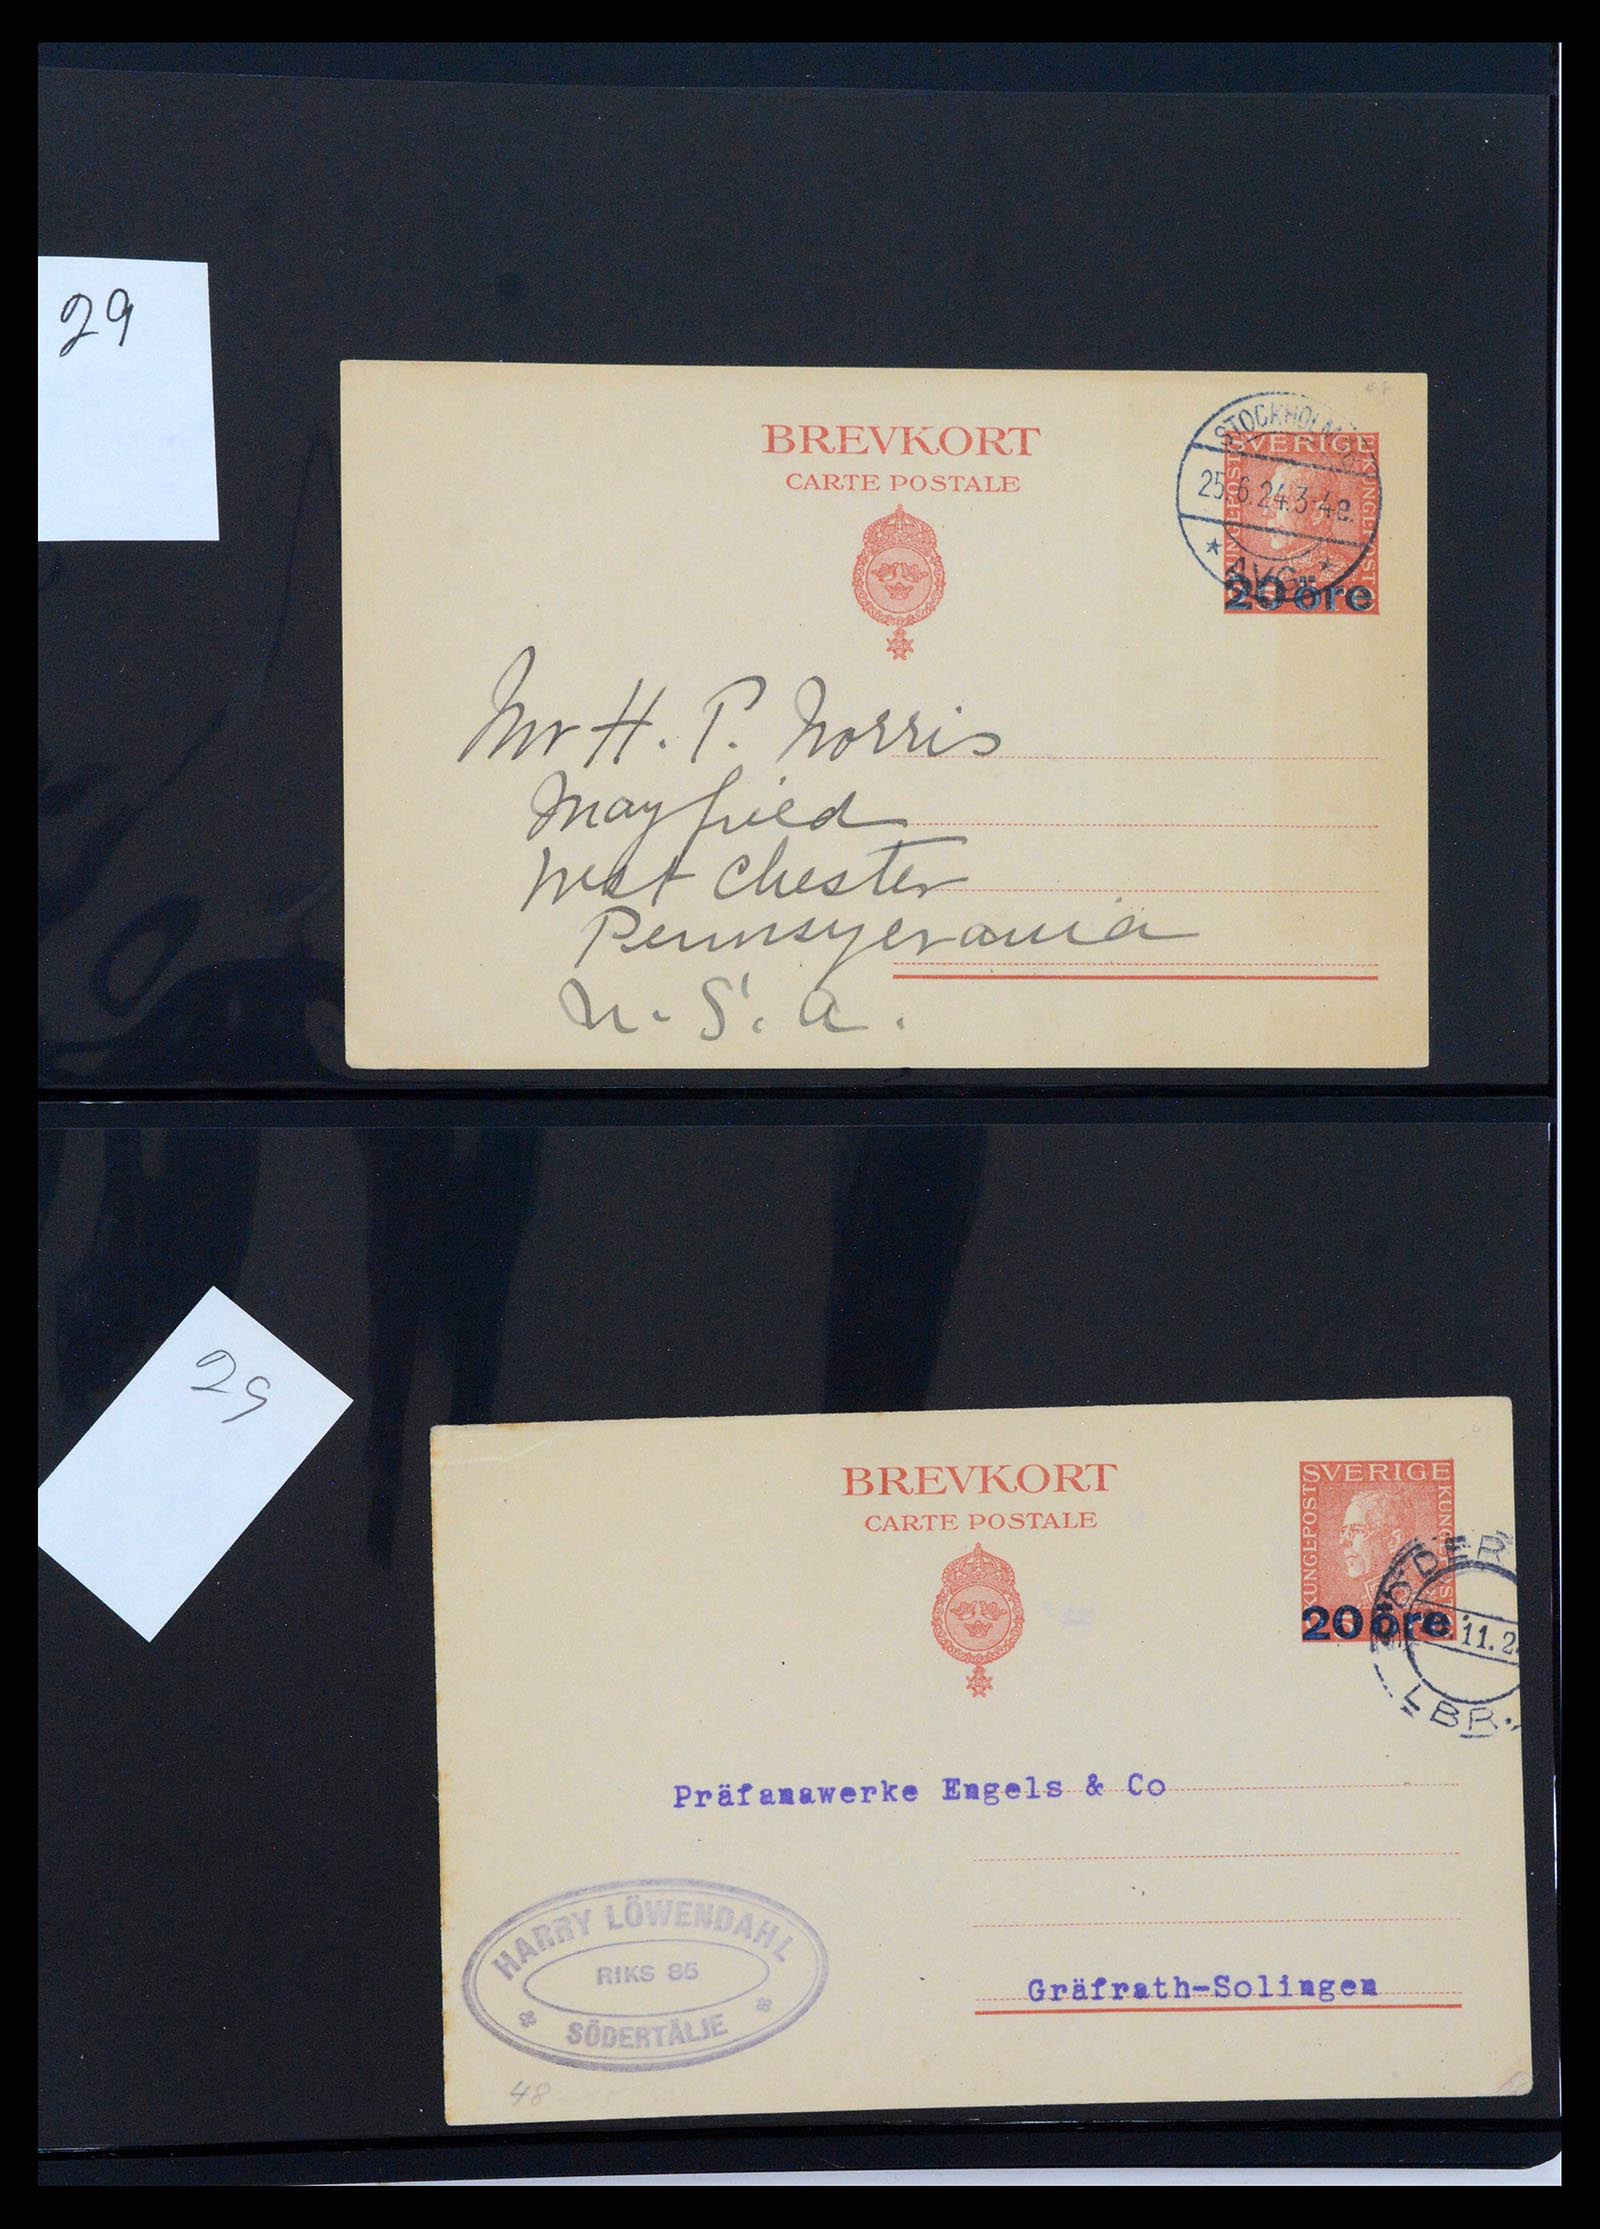 29
BREVKORT
CARTE POSTALE
STOCKHOLM
25.6.24.3-4e.
AVG.
SVERIGE
20 öre
Mr H. P. Norris
Mayfield
West Chester
Pennsylvania
U. S. A.
29
BREVKORT
CARTE POSTALE
SVERIGE
KUNGL·POST
20 öre
SÖDER
11.2
LBR.
Präfanawerke Engels & Co
HARRY LÖWENDAHL
RIKS 85
SÖDERTÄLJE
Gräfrath-Solingen
48